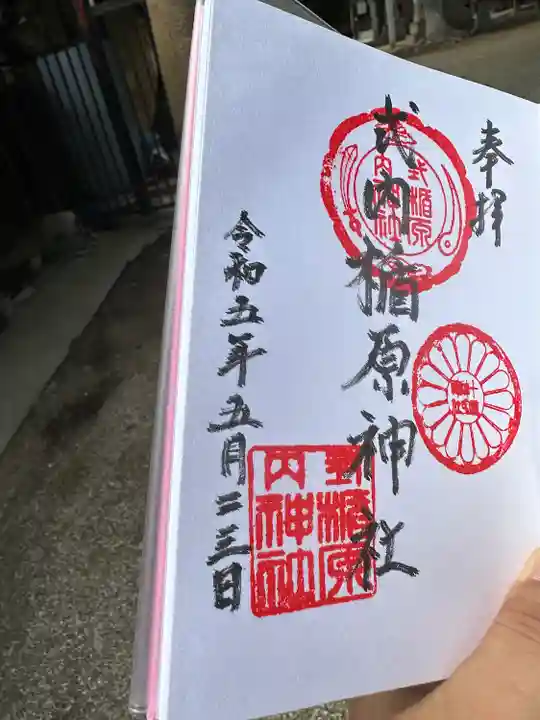 奉拝
式内楯原神社
令和五年五月二三日
式楯原
内神社
式楯原
内神社